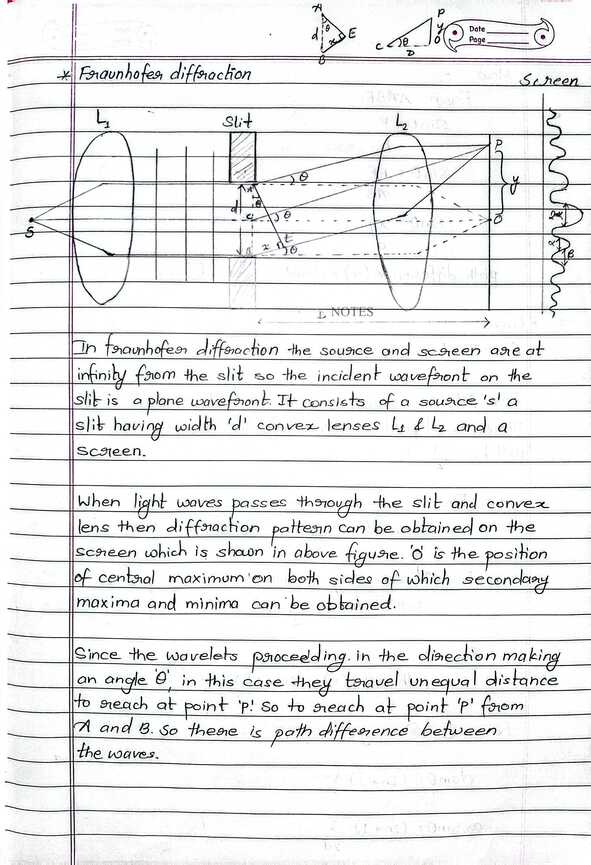 A
θ
d
x
E
B
P
y
θ
C
D
O
Date
Page
* Fraunhofer diffraction
Screen
L1
Slit
L2
P
θ
A
θ
y
d
C
θ
S
O
2α
x
t
θ
B
α
β
D NOTES
In fraunhofer diffraction the source and screen are at
infinity from the slit so the incident wavefront on the
slit is a plane wavefront. It consists of a source 's' a
slit having width 'd' convex lenses L1 & L2 and a
screen.
When light waves passes through the slit and convex
lens then diffraction pattern can be obtained on the
screen which is shown in above figure. 'O' is the position
of central maximum on both sides of which secondary
maxima and minima can be obtained.
Since the wavelets proceeding in the direction making
an angle 'θ', in this case they travel unequal distance
to reach at point 'P'. So to reach at point 'P' from
A and B. so there is path difference between
the waves.